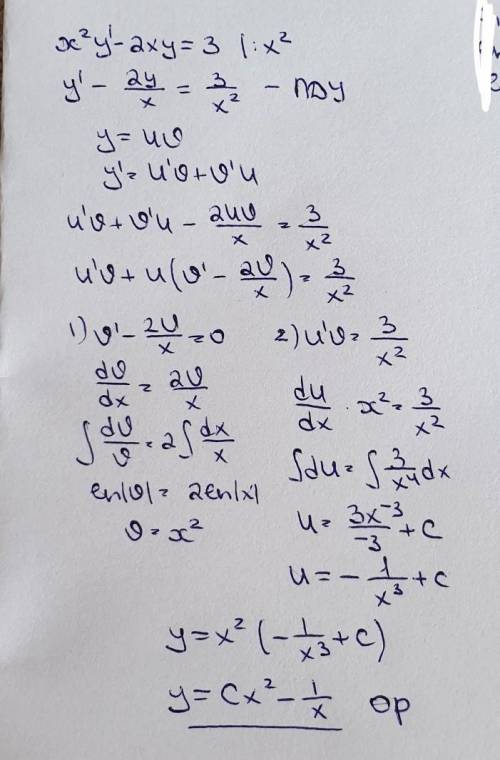 x²y' - 2xy = 3 |: x²
y' - 2y/x = 3/x² - ЛДУ
y = uv
y' = u'v + v'u
u'v + v'u - 2uv/x = 3/x²
u'v + u(v' - 2v/x) = 3/x²
1) v' - 2v/x = 0
dv/dx = 2v/x
∫ dv/v = 2∫ dx/x
ln|v| = 2ln|x|
v = x²
2) u'v = 3/x²
du/dx · x² = 3/x²
∫du = ∫ 3/x⁴ dx
u = 3x⁻³/-3 + C
u = - 1/x³ + C
y = x² (- 1/x³ + C)
y = Cx² - 1/x ор